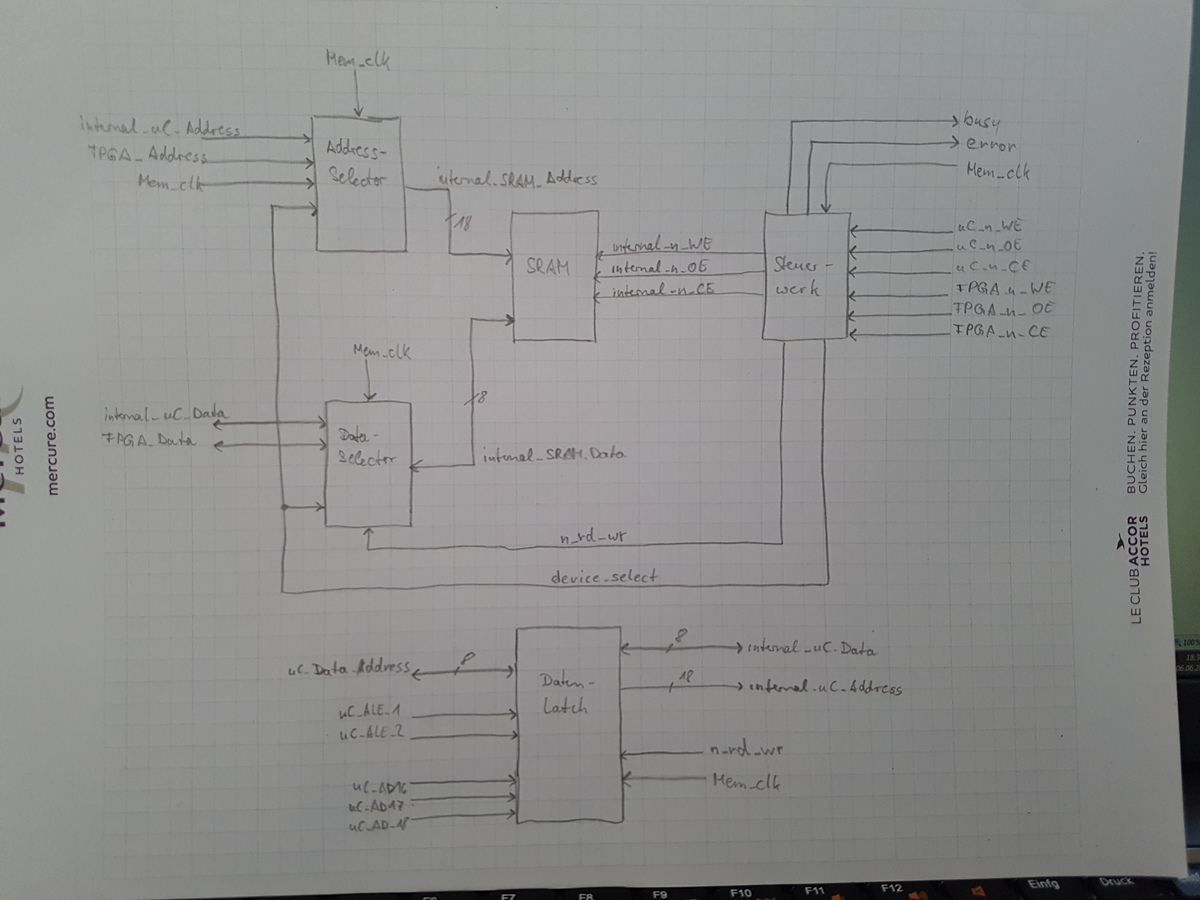 Mem_clk
internal_uC_Address
FPGA_Address
Mem_clk
Address-
Selector
internal_SRAM_Address
18
SRAM
internal_n_WE
internal_n_OE
internal_n_CE
Steuer-
werk
busy
error
Mem_clk
uC_n_WE
uC_n_OE
uC_n_CE
FPGA_n_WE
FPGA_n_OE
FPGA_n_CE
Mem_clk
8
internal_uC_Data
FPGA_Data
Data-
Selector
internal_SRAM_Data
n_rd_wr
device_select
uC_Data_Address
8
uC_ALE_1
uC_ALE_2
uC_AD16
uC_AD17
uC_AD_18
Daten-
Latch
8
internal_uC_Data
18
internal_uC_Address
n_rd_wr
Mem_clk
HOTELS
mercure.com
BUCHEN. PUNKTEN. PROFITIEREN.
Gleich hier an der Rezeption anmelden!
LE CLUB ACCOR
HOTELS
F7
F8
F9
F10
F11
F12
Einfg
Druck